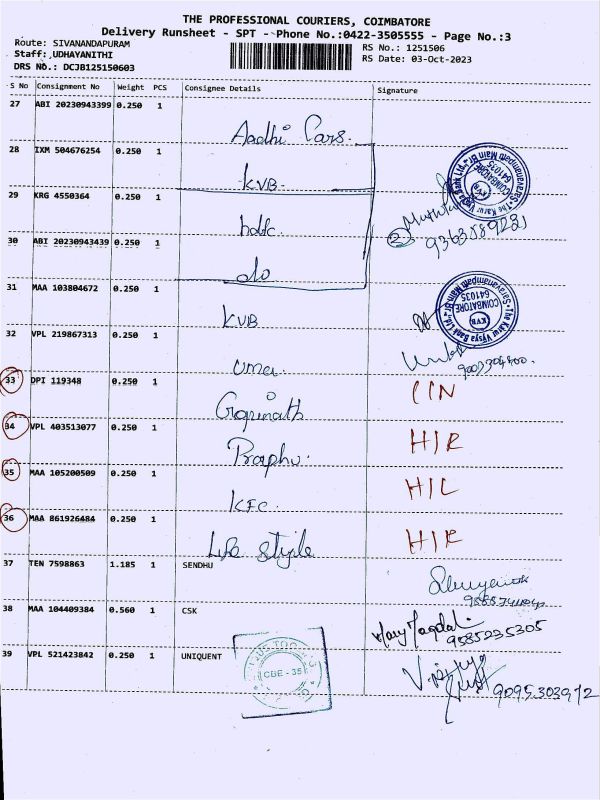 THE PROFESSIONAL COURIERS, COIMBATORE
Delivery Runsheet - SPT - Phone No.:0422-3505555 - Page No.:3
Route: SIVANANDAPURAM
Staff: UDHAYANITHI
DRS No.: DCJB125150603
RS No.: 1251506
RS Date: 03-Oct-2023
S No Consignment No Weight PCS Consignee Details Signature
27 ABI 20230943399 0.250 1 Aadhi Cars.
28 IXM 504676254 0.250 1 KVB.
29 KRG 4550364 0.250 1 hdfc.
30 ABI 20230943439 0.250 1 do
31 MAA 103804672 0.250 1 KVB
32 VPL 219867313 0.250 1 Uma.
33 DPI 119348 0.250 1 Gopinath CIN
34 VPL 403513077 0.250 1 Praphu. HIR
35 MAA 105200509 0.250 1 KFC. HIL
36 MAA 861926484 0.250 1 Life style HIR
37 TEN 7598863 1.185 1 SENDHU
38 MAA 104409384 0.560 1 CSK Mary Magdali 9585235305
39 VPL 521423842 0.250 1 UNIQUENT 9095303972
The Karur Vysya Bank Ltd.,
COIMBATORE
641035
KVB
The Karur Vysya Bank Ltd.,
COIMBATORE
641035
KVB
CBE - 35